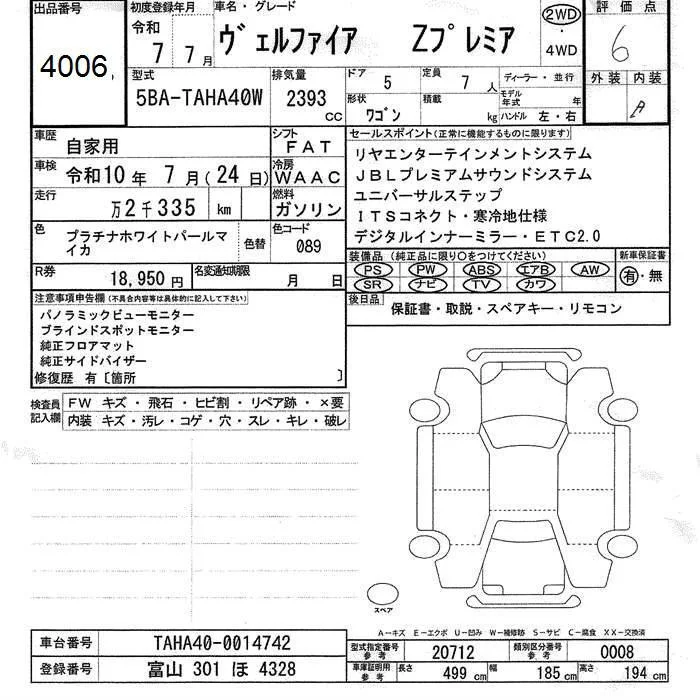 出品番号
4006
初度登録年月
令和
7 7月
車名・グレード
ヴェルファイア Zプレミア
2WD
・
4WD
評価点
6
外装 内装
A
型式
5BA-TAHA40W
排気量
2393 cc
ドア 5
定員 7人
形状 ワゴン
積載 kg
ディーラー・並行
モデル年式 年
ハンドル 左・右
車歴 自家用
シフト FAT
車検 令和10年 7月(24日)
冷房 WAAC
走行 万2千335 km
燃料 ガソリン
色 プラチナホワイトパールマイカ
色替
色コード 089
R券 18,950円
名変通知期限 月 日
セールスポイント(正常に機能するものに限ります)
リヤエンターテインメントシステム
JBLプレミアムサウンドシステム
ユニバーサルステップ
ITSコネクト・寒冷地仕様
デジタルインナーミラー・ETC2.0
装備品 (純正品に限り〇をつけてください)
新車保証書
PS PW ABS エアB AW
SR ナビ TV カワ
有・無
後日品 保証書・取説・スペアキー・リモコン
注意事項申告欄(不具合内容等は具体的に記入して下さい)
パノラミックビューモニター
ブラインドスポットモニター
純正フロアマット
純正サイドバイザー
修復歴 有〔箇所 〕
検査員記入欄
FW キズ・飛石・ヒビ割・リペア跡・×要
内装 キズ・汚レ・コゲ・穴・スレ・キレ・破レ
スペア
A-キズ E-エクボ U-凹み W-補修跡 S-サビ C-腐食 XX-交換済
車台番号 TAHA40-0014742
登録番号 富山 301 ほ 4328
型式指定番号参考 20712
類別区分番号参考 0008
車庫証明用参考 長さ 499 cm 幅 185 cm 高さ 194 cm